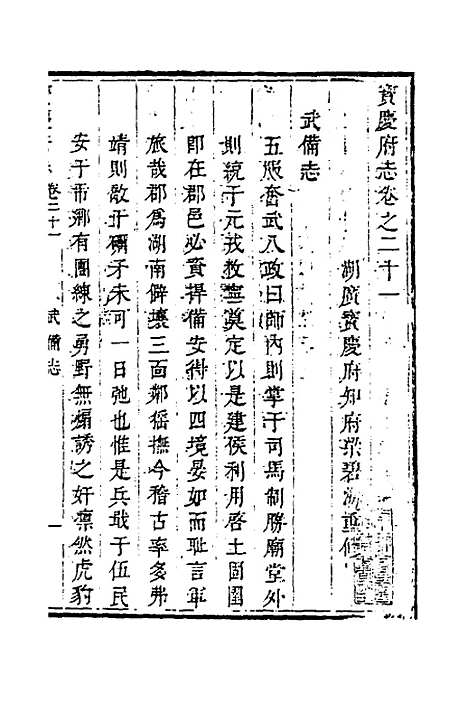 寳慶府志卷之二十一
湖廣寳慶府知府梁碧海重修
武備志
五版奮武八政曰師內則掌于司馬制勝廟堂外
則統于元戎敎寧奠定以是建侯利用啓土固圉
即在郡邑必資捍備安得以四境晏如而耻言軍
旅哉郡爲湖南僻壤三面鄰猺撫今稽古率多弗
靖則敵干礪矛未可一日弛也惟是兵戢于伍民
安于市鄉有團練之勇野無煽誘之奸凜然虎豹
卷二十一
武備志
一